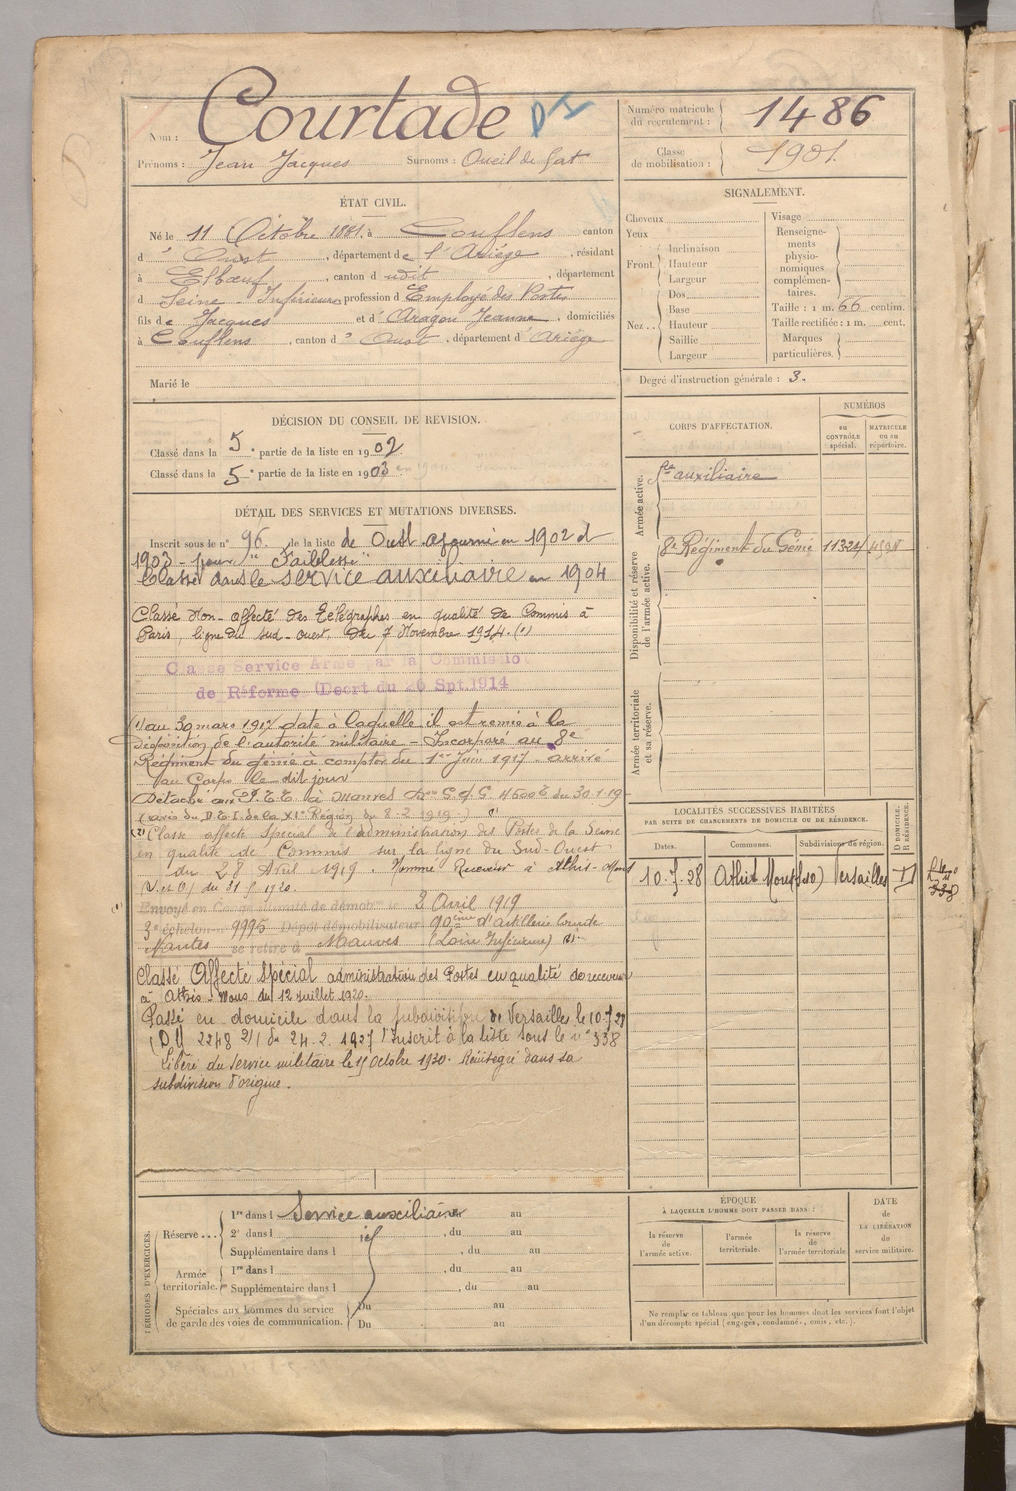 Nom : Courtade
Prénoms : Jean Jacques Surnoms : Oueil de Gat
Numéro matricule du recrutement : 1486
Classe de mobilisation : 1901
ÉTAT CIVIL.
Né le 11 Octobre 1881, à Couflens canton
d' Oust, département de l'Ariège, résidant
à Elboeuf, canton d udit, département
d Seine-Inférieure, profession d'Employé des Postes
fils de Jacques et d' Aragon Jeanne, domiciliés
à Couflens, canton d' Oust, département d'Ariège
Marié le
SIGNALEMENT.
Cheveux
Yeux
Front. Inclinaison
Hauteur
Largeur
Nez.. Dos
Base
Hauteur
Saillie
Largeur
Visage
Renseignements physionomiques complémentaires.
Taille : 1 m. 66 centim.
Taille rectifiée : 1 m. cent.
Marques particulières.
Degré d'instruction générale : 3.
DÉCISION DU CONSEIL DE REVISION.
Classé dans la 5e partie de la liste en 1902
Classé dans la 5e partie de la liste en 1903
DÉTAIL DES SERVICES ET MUTATIONS DIVERSES.
Inscrit sous le n° 96 de la liste de Oust. ajourné en 1902 et
1903 - pour " Faiblesse "
Classé dans le service auxiliaire en 1904
Classé Non-affecté des Télégraphes en qualité de Commis à
Paris, ligne du Sud-Ouest, du 7 Novembre 1914. (1)
Classé Service Armé par la Commission
de Réforme (Decrt du 26 Spt.1914
(1) au 30 mars 1917 date à laquelle il est remis à la
disposition de l'autorité militaire - Incorporé au 8e
Régiment du génie à compter du 1er Juin 1917. arrivé
au Corps le dit jour
Détaché aux à Mauves G.Q.G. 4600 E du 30.1.19-
(avis du D.E.T. de la XIe Région du 8.2.1919.)
(2) Classé affecté Spécial de l'administration des Postes de la Seine
en qualité de Commis sur la ligne du Sud-Ouest
du 28 Avril 1919. Nommé Receveur à Athis-Mons
du 31 1920.
Envoyé en Congé illimité de démob. le 3 Avril 1919
3e échelon n° 9995 Dépôt démobilisateur 90ème d'artillerie lourde
Nantes se retire à Mauves (Loire Inférieure) (2)
Classé Affecté Spécial administration des Postes en qualité de receveur
à Athis-Mons du 12 Juillet 1920.
Passé en domicile dans la subdivision de Versailles le 10-7-28
(DM 2248 2/1 du 24.2.1927 l'inscrit à la liste sous le n° 338
Libéré du service militaire le 15 Octobre 1930. Réintégré dans sa
subdivision d'origine.
CORPS D'AFFECTATION.
NUMÉROS
au CONTRÔLE spécial.
MATRICULE ou au répertoire.
Armée active.
Sce auxiliaire
Disponibilité et réserve de l'armée active.
8e Régiment du Génie 11324
Armée territoriale et sa réserve.
LOCALITÉS SUCCESSIVES HABITÉES
PAR SUITE DE CHANGEMENTS DE DOMICILE OU DE RÉSIDENCE.
Dates. Communes. Subdivisions de région. D DOMICILE. R RÉSIDENCE.
10.7.28 Athis Mons (S et O) Versailles D
338
PÉRIODES D'EXERCICES.
Réserve... 1re dans l Service auxiliaire au
2e dans l , du au
Supplémentaire dans l , du au
Armée territoriale. 1re dans l , du au
Supplémentaire dans l , du au
Spéciales aux hommes du service de garde des voies de communication. Du au
Du au
ÉPOQUE
À LAQUELLE L'HOMME DOIT PASSER DANS :
la réserve de l'armée active.
l'armée territoriale.
la réserve de l'armée territoriale
DATE de LA LIBÉRATION du service militaire.
Ne remplir ce tableau que pour les hommes dont les services font l'objet
d'un décompte spécial (engagés, condamnés, omis, etc.).